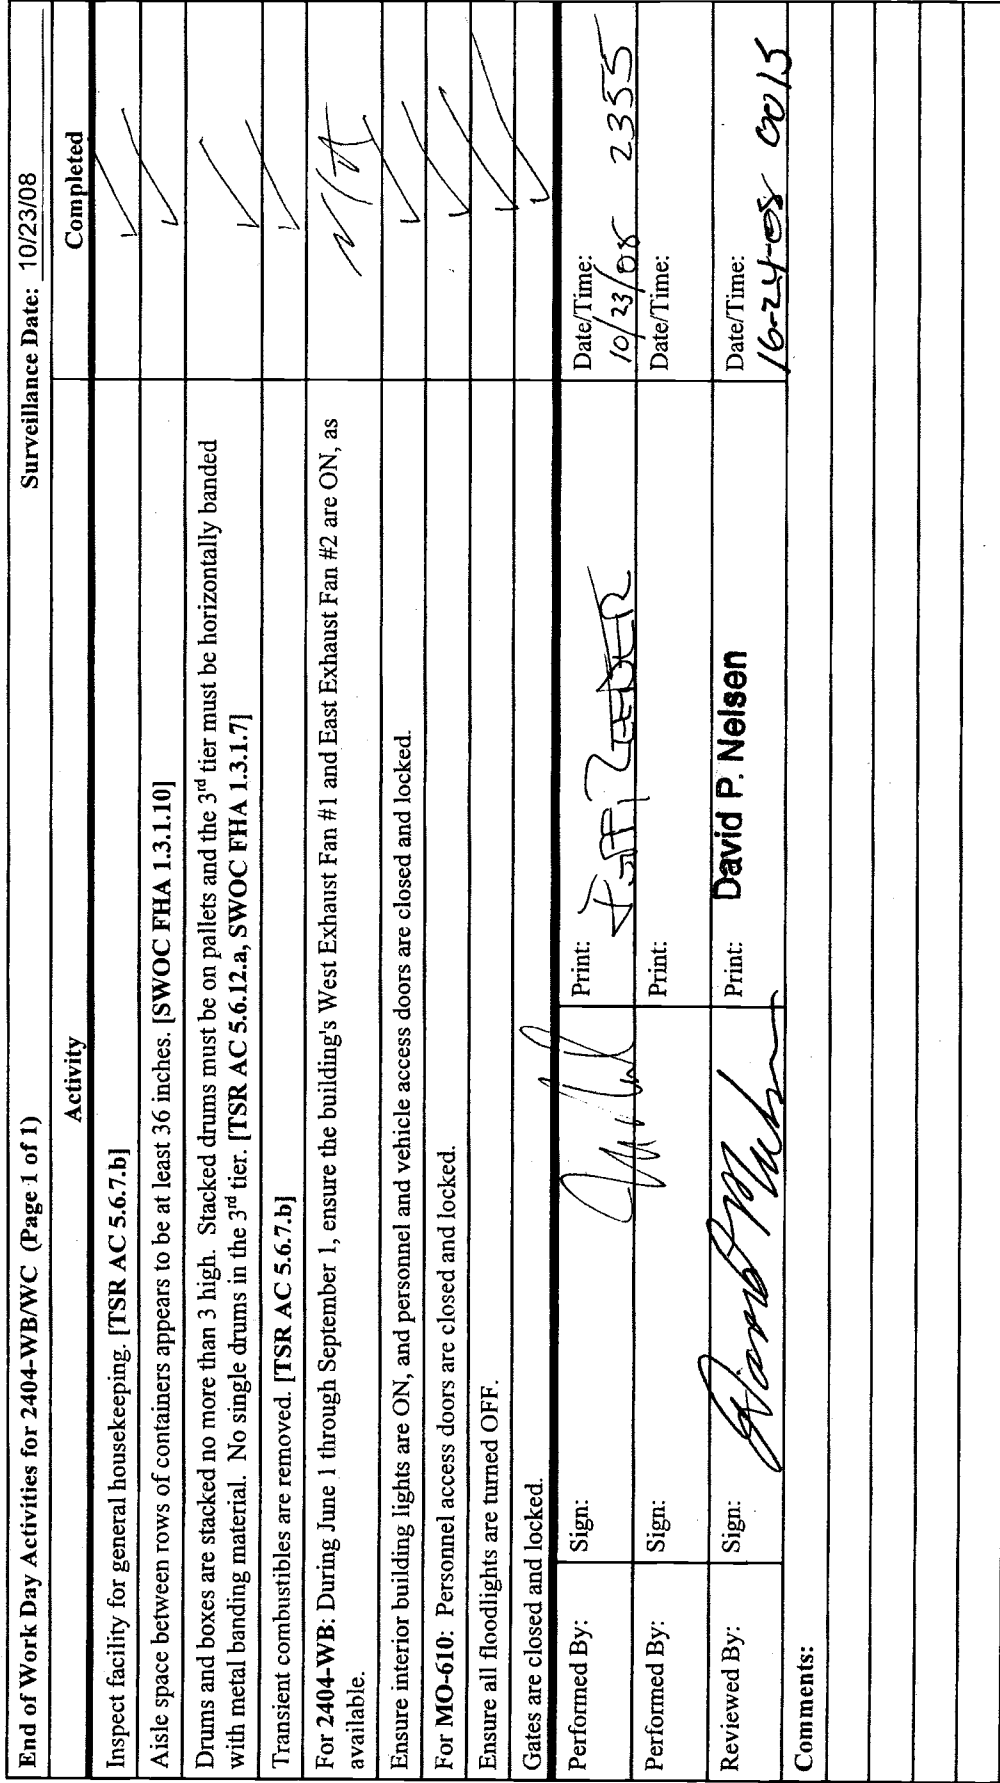 End of Work Day Activities for 2404-WB/WC (Page 1 of 1) Surveillance Date: 10/23/08
Activity Completed
Inspect facility for general housekeeping. [TSR AC 5.6.7.b] ✓
Aisle space between rows of containers appears to be at least 36 inches. [SWOC FHA 1.3.1.10] ✓
Drums and boxes are stacked no more than 3 high. Stacked drums must be on pallets and the 3rd tier must be horizontally banded
with metal banding material. No single drums in the 3rd tier. [TSR AC 5.6.12.a, SWOC FHA 1.3.1.7] ✓
Transient combustibles are removed. [TSR AC 5.6.7.b] ✓
For 2404-WB: During June 1 through September 1, ensure the building's West Exhaust Fan #1 and East Exhaust Fan #2 are ON, as
available. N/A
Ensure interior building lights are ON, and personnel and vehicle access doors are closed and locked. ✓
For MO-610: Personnel access doors are closed and locked. ✓
Ensure all floodlights are turned OFF. ✓
Gates are closed and locked. ✓
Performed By: Sign: Print: Date/Time:
10/23/08 2355
Performed By: Sign: Print: Date/Time:
Reviewed By: Sign: Print: David P. Nelsen Date/Time:
10-24-08 0015
Comments: